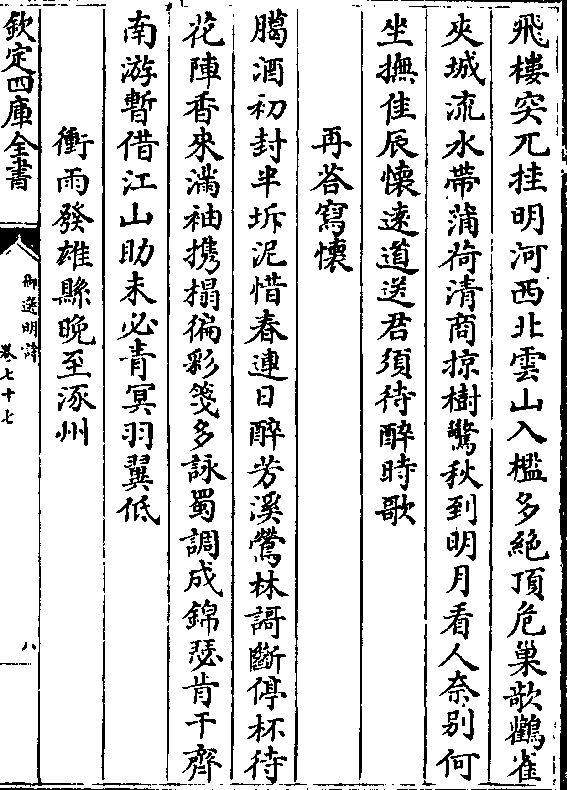 飛樓突兀挂明河西北雲山入檻多絶頂危巢歌鸛雀
夾城流水帶蒲荷清商掠樹驚秋到明月看人奈别何
坐撫佳辰懷遠道送君須待醉時歌
再答寫懷
臈酒初封半坼泥惜春連日醉芳溪鶯林謌斷停杯待
花陣香來滿袖擕榻徧彩箋多詠蜀調成錦瑟肯干齊
南游暫借江山助未必青冥羽翼低
衝雨發雄縣晚至涿州
欽定四庫全書
御選明詩
卷七十七
八